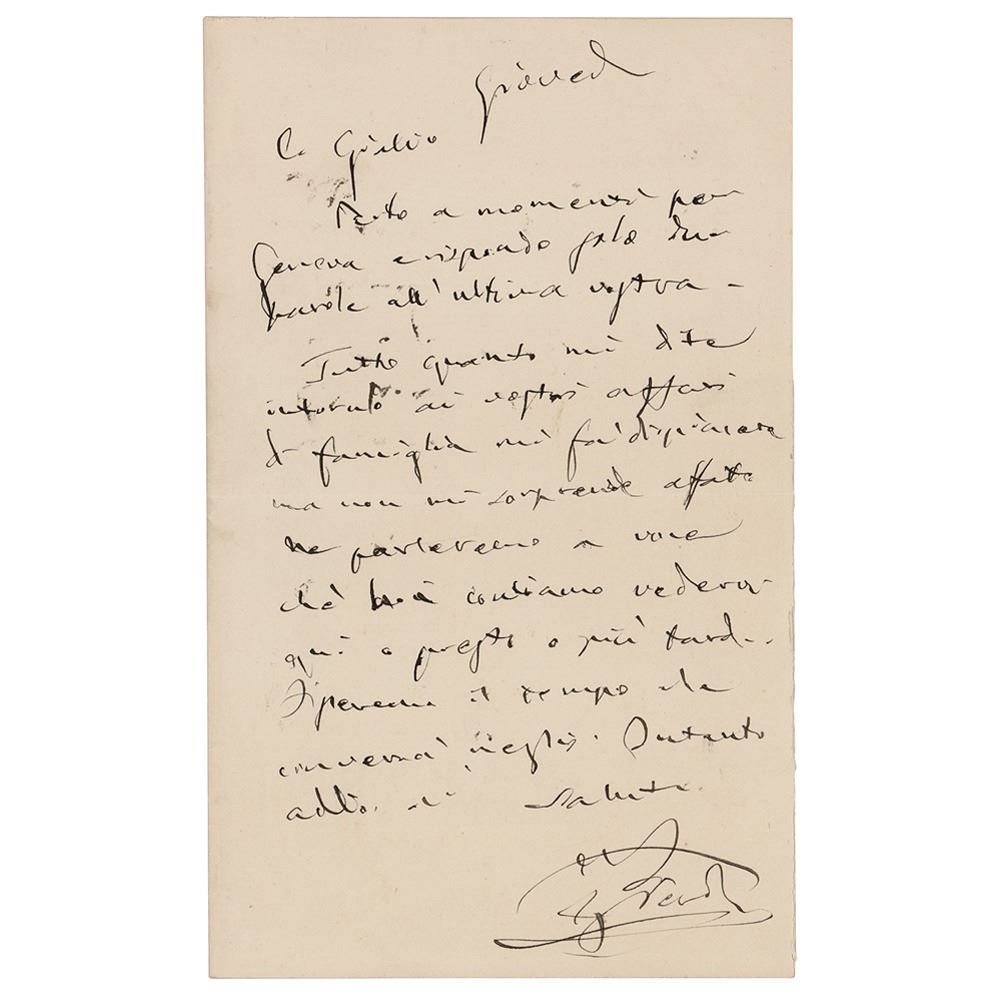 Gioved
C. Giulio
Parto a momenti per
Genova e rispondo solo due
parole all'ultima vostra –
Tutto quanto mi dite
intorno ai vostri affari
di famiglia mi fa dispiacere
ma non mi sorprende affatto
ne parleremo a voce
chè contiamo vedervi
qui o presto o più tardi.
il tempo che
converrà meglio. Intanto
addio.
G Verdi